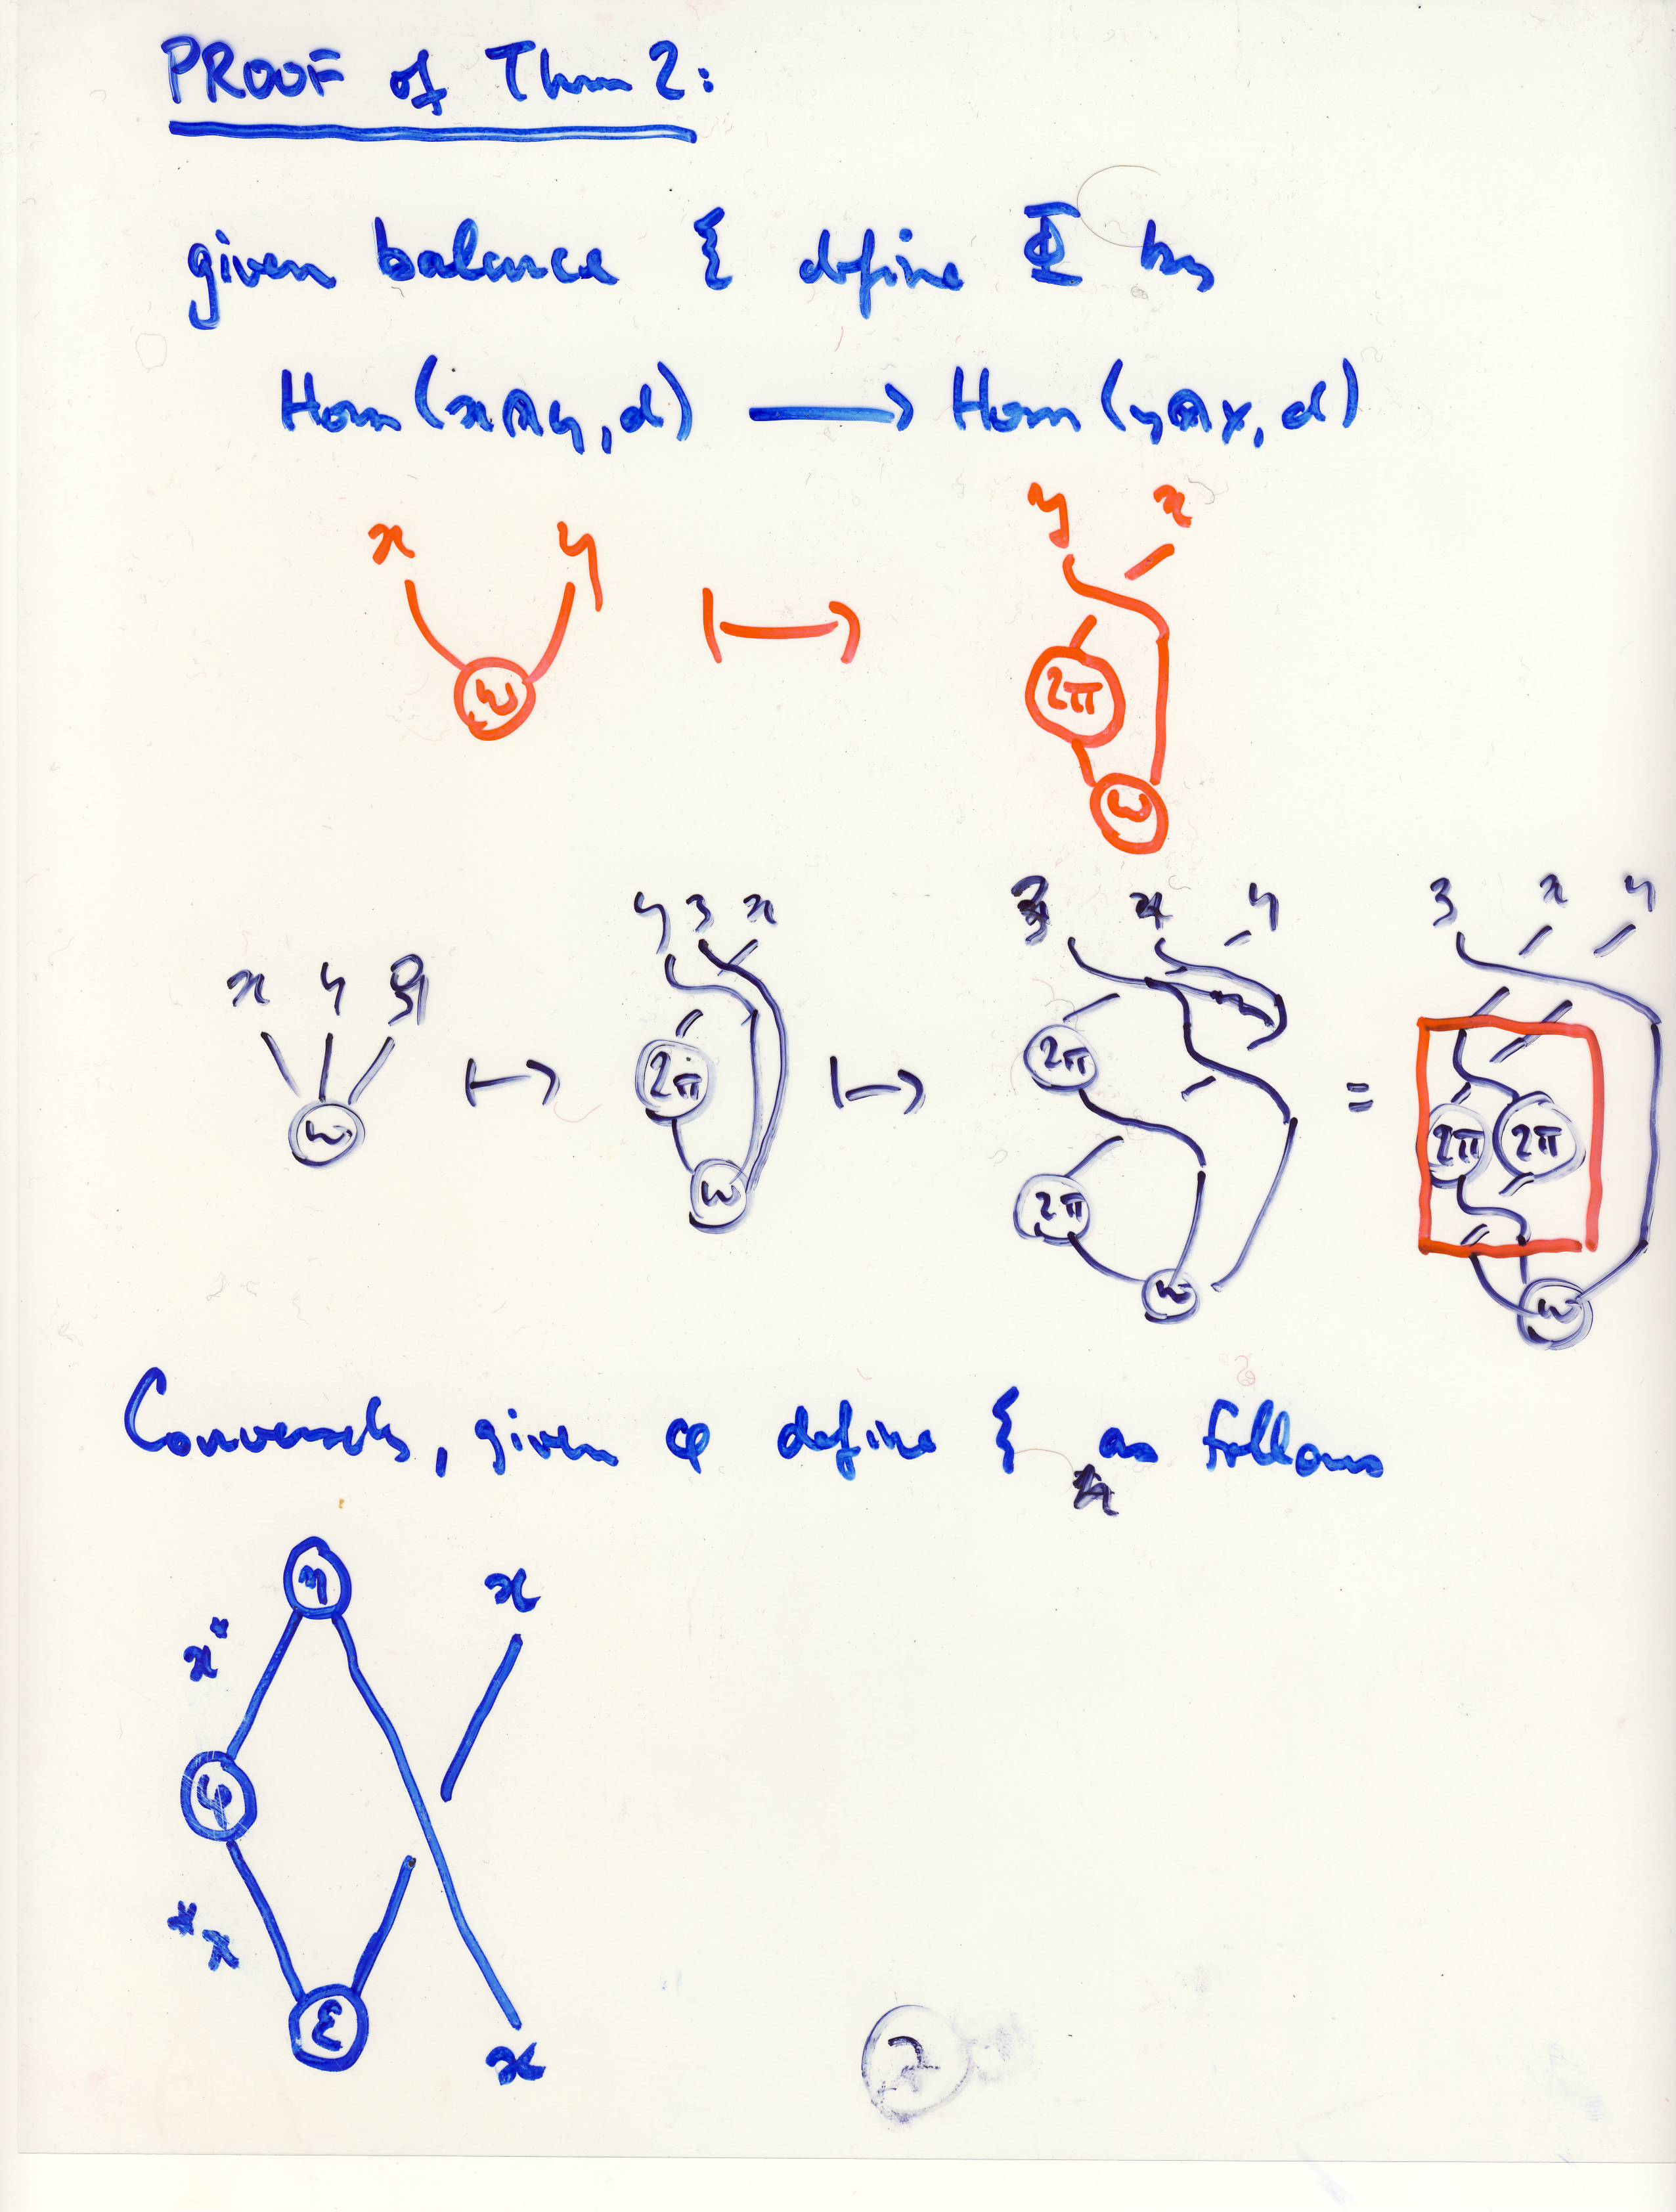 PROOF of Thm 2:
given balance ξ define Φ by
Hom(x⊗y, d) ⟶ Hom(y⊗x, d)
x y ↦ y x
ω 2π
ω
x y z ↦ y z x ↦ z x y = z x y
2π 2π 2π 2π
ω ω 2π ω ω
Conversely, given φ define ξ as follows
x
η x
x*
φ
*x
ε x
7